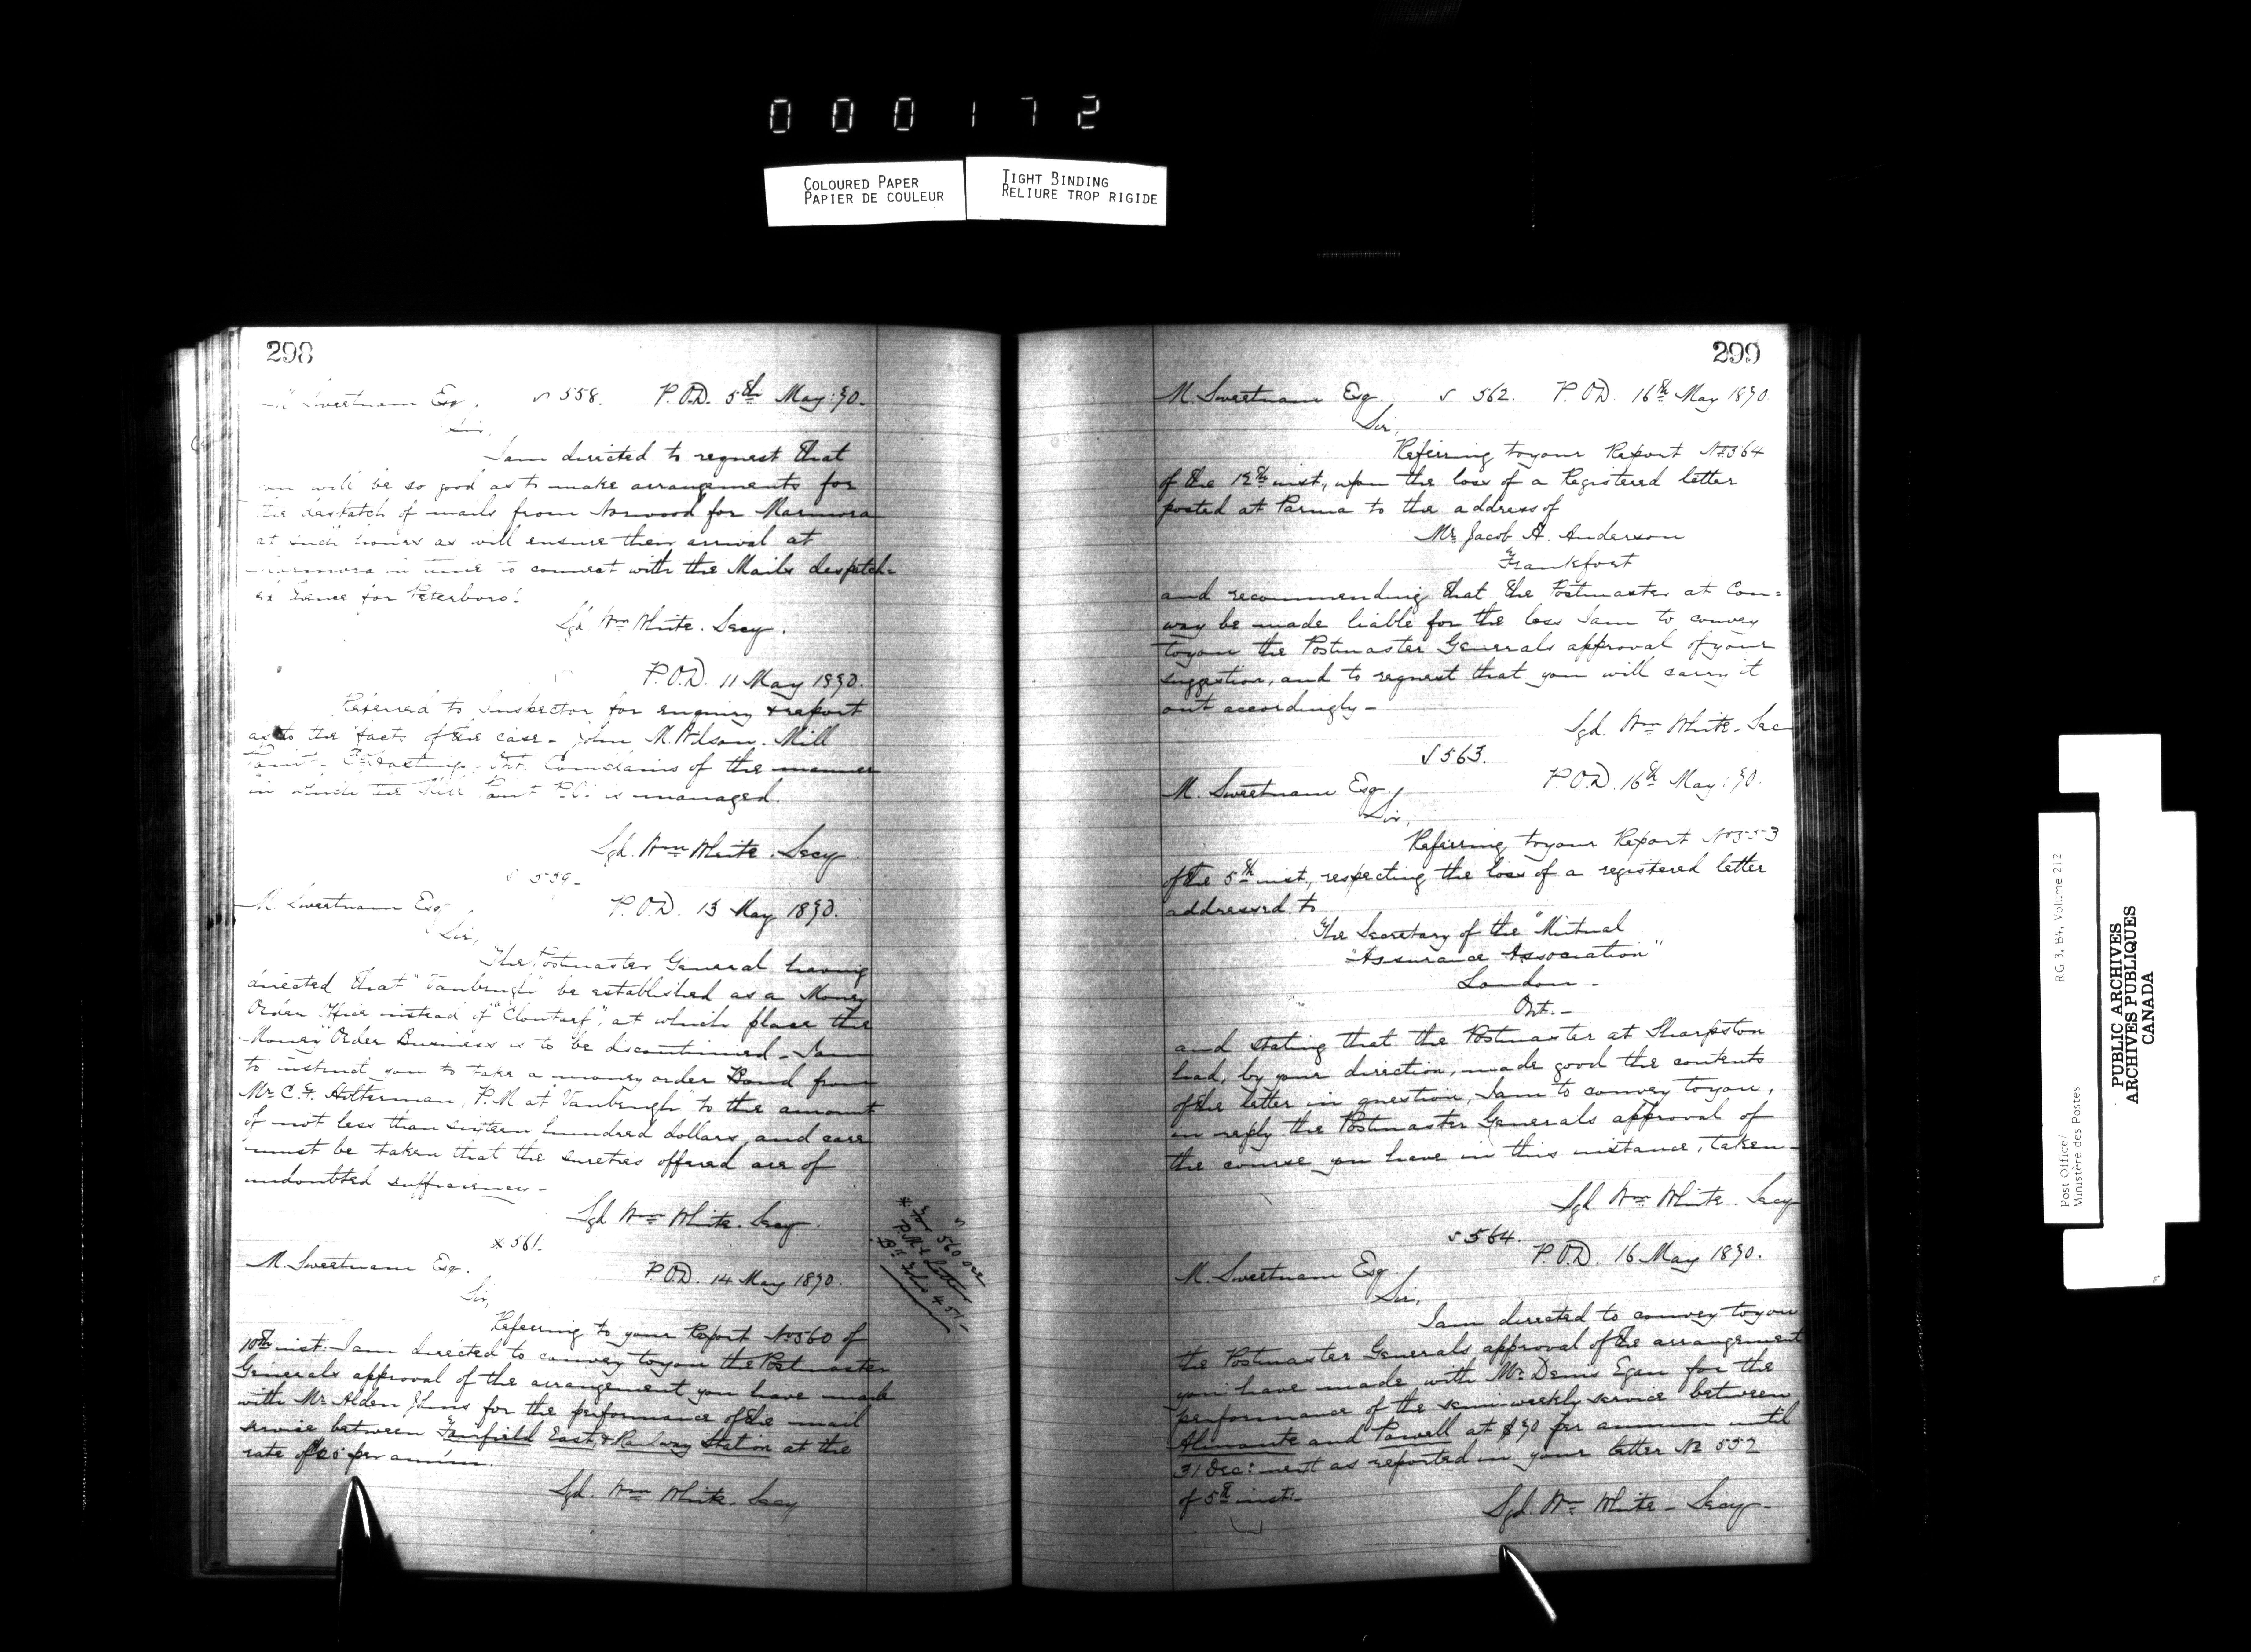 000172
COLOURED PAPER
PAPIER DE COULEUR
TIGHT BINDING
RELIURE TROP RIGIDE
298
Sweetnam Esq. 558. P.O.D. 5th May: 90.
Sir,
I am directed to request that
you will be so good as to make arrangements for
the despatch of mails from Norwood for Marmora
at such hours as will ensure their arrival at
Marmora in time to connect with the Mails despatch-
ed thence for Peterboro'.
Sgd. Wm White. Secy.
P.O.D. 11 May 1890.
Referred to Inspector for enquiry & report
as to the facts of the case - John M. Wilson. Mill
Point. Ont. Complains of the manner
in which the Mill Point P.O. is managed.
Sgd. Wm White. Secy
559-
M. Sweetnam Esq P.O.D. 13 May 1890.
Sir,
The Postmaster General having
directed that "Vanbrugh" be established as a Money
Order Office instead of "Clontarf", at which place the
Money Order Business is to be discontinued - I am
to instruct you to take a money order Bond from
Mr C. F. Holterman, P.M at "Vanbrugh" to the amount
of not less than sixteen hundred dollars, and care
must be taken that the sureties offered are of
undoubted sufficiency -
Sgd Wm White. Secy.
* 561.
M. Sweetnam Esq. P.O.D. 14 May 1890.
Sir,
Referring to your Report No 560 of
10th inst: I am directed to convey to you the Postmaster
Generals approval of the arrangement you have made
with Mr. Alden Johns for the performance of the mail
service between Fairfield East & Railway Station at the
rate of per annum.
Sgd. Wm White. Secy
* For 560 see
P.M & Letter
Bk Folio 451-
299
M. Sweetnam Esq. 562. P.O.D. 16th May 1890.
Sir,
Referring to your Report No 564
of the 12th inst., upon the loss of a Registered letter
posted at Parma to the address of
Mr. Jacob A. Anderson
Frankfort
and recommending that the Postmaster at Con=
way be made liable for the loss I am to convey
to you the Postmaster Generals approval of your
suggestion, and to request that you will carry it
out accordingly -
Sgd. Wm White - Sec
563.
M. Sweetnam Esq. P.O.D. 16th May: 90.
Sir,
Referring to your Report No 553
of the 5th inst., respecting the loss of a registered letter
addressed to
The Secretary of the "Mutual
"Assurance Association"
London -
Ont. -
and stating that the Postmaster at Sharpston
had, by your direction, made good the contents
of the letter in question, I am to convey to you,
in reply the Postmaster Generals approval of
the course you have in this instance, taken -
Sgd. Wm White. Secy
564.
M. Sweetnam Esq. P.O.D. 16 May 1890.
Sir,
I am directed to convey to you
the Postmaster Generals approval of the arrangement
you have made with Mr. Denis Egan for the
performance of the semi-weekly service between
Almonte and Powell at $90 per annum until
31 Dec: next as reported in your letter No 552
of 5th inst: -
Sgd. Wm White - Secy -
RG 3, B4, Volume 212
Post Office/
Ministère des Postes
PUBLIC ARCHIVES
ARCHIVES PUBLIQUES
CANADA